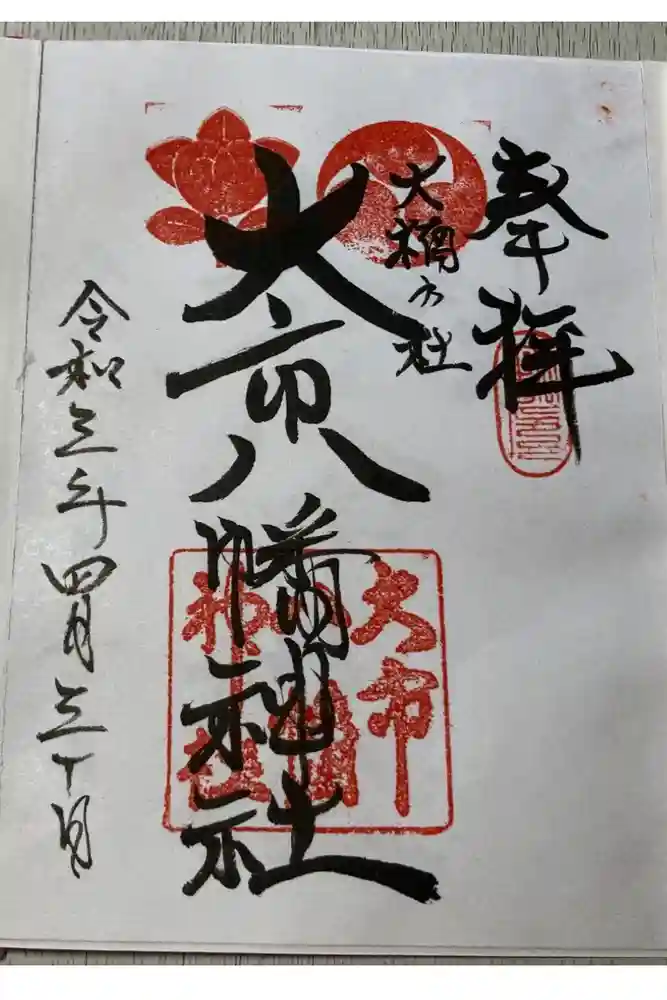 奉拝
大市八幡神社
令和三年四月三十日
大市
八幡
神社